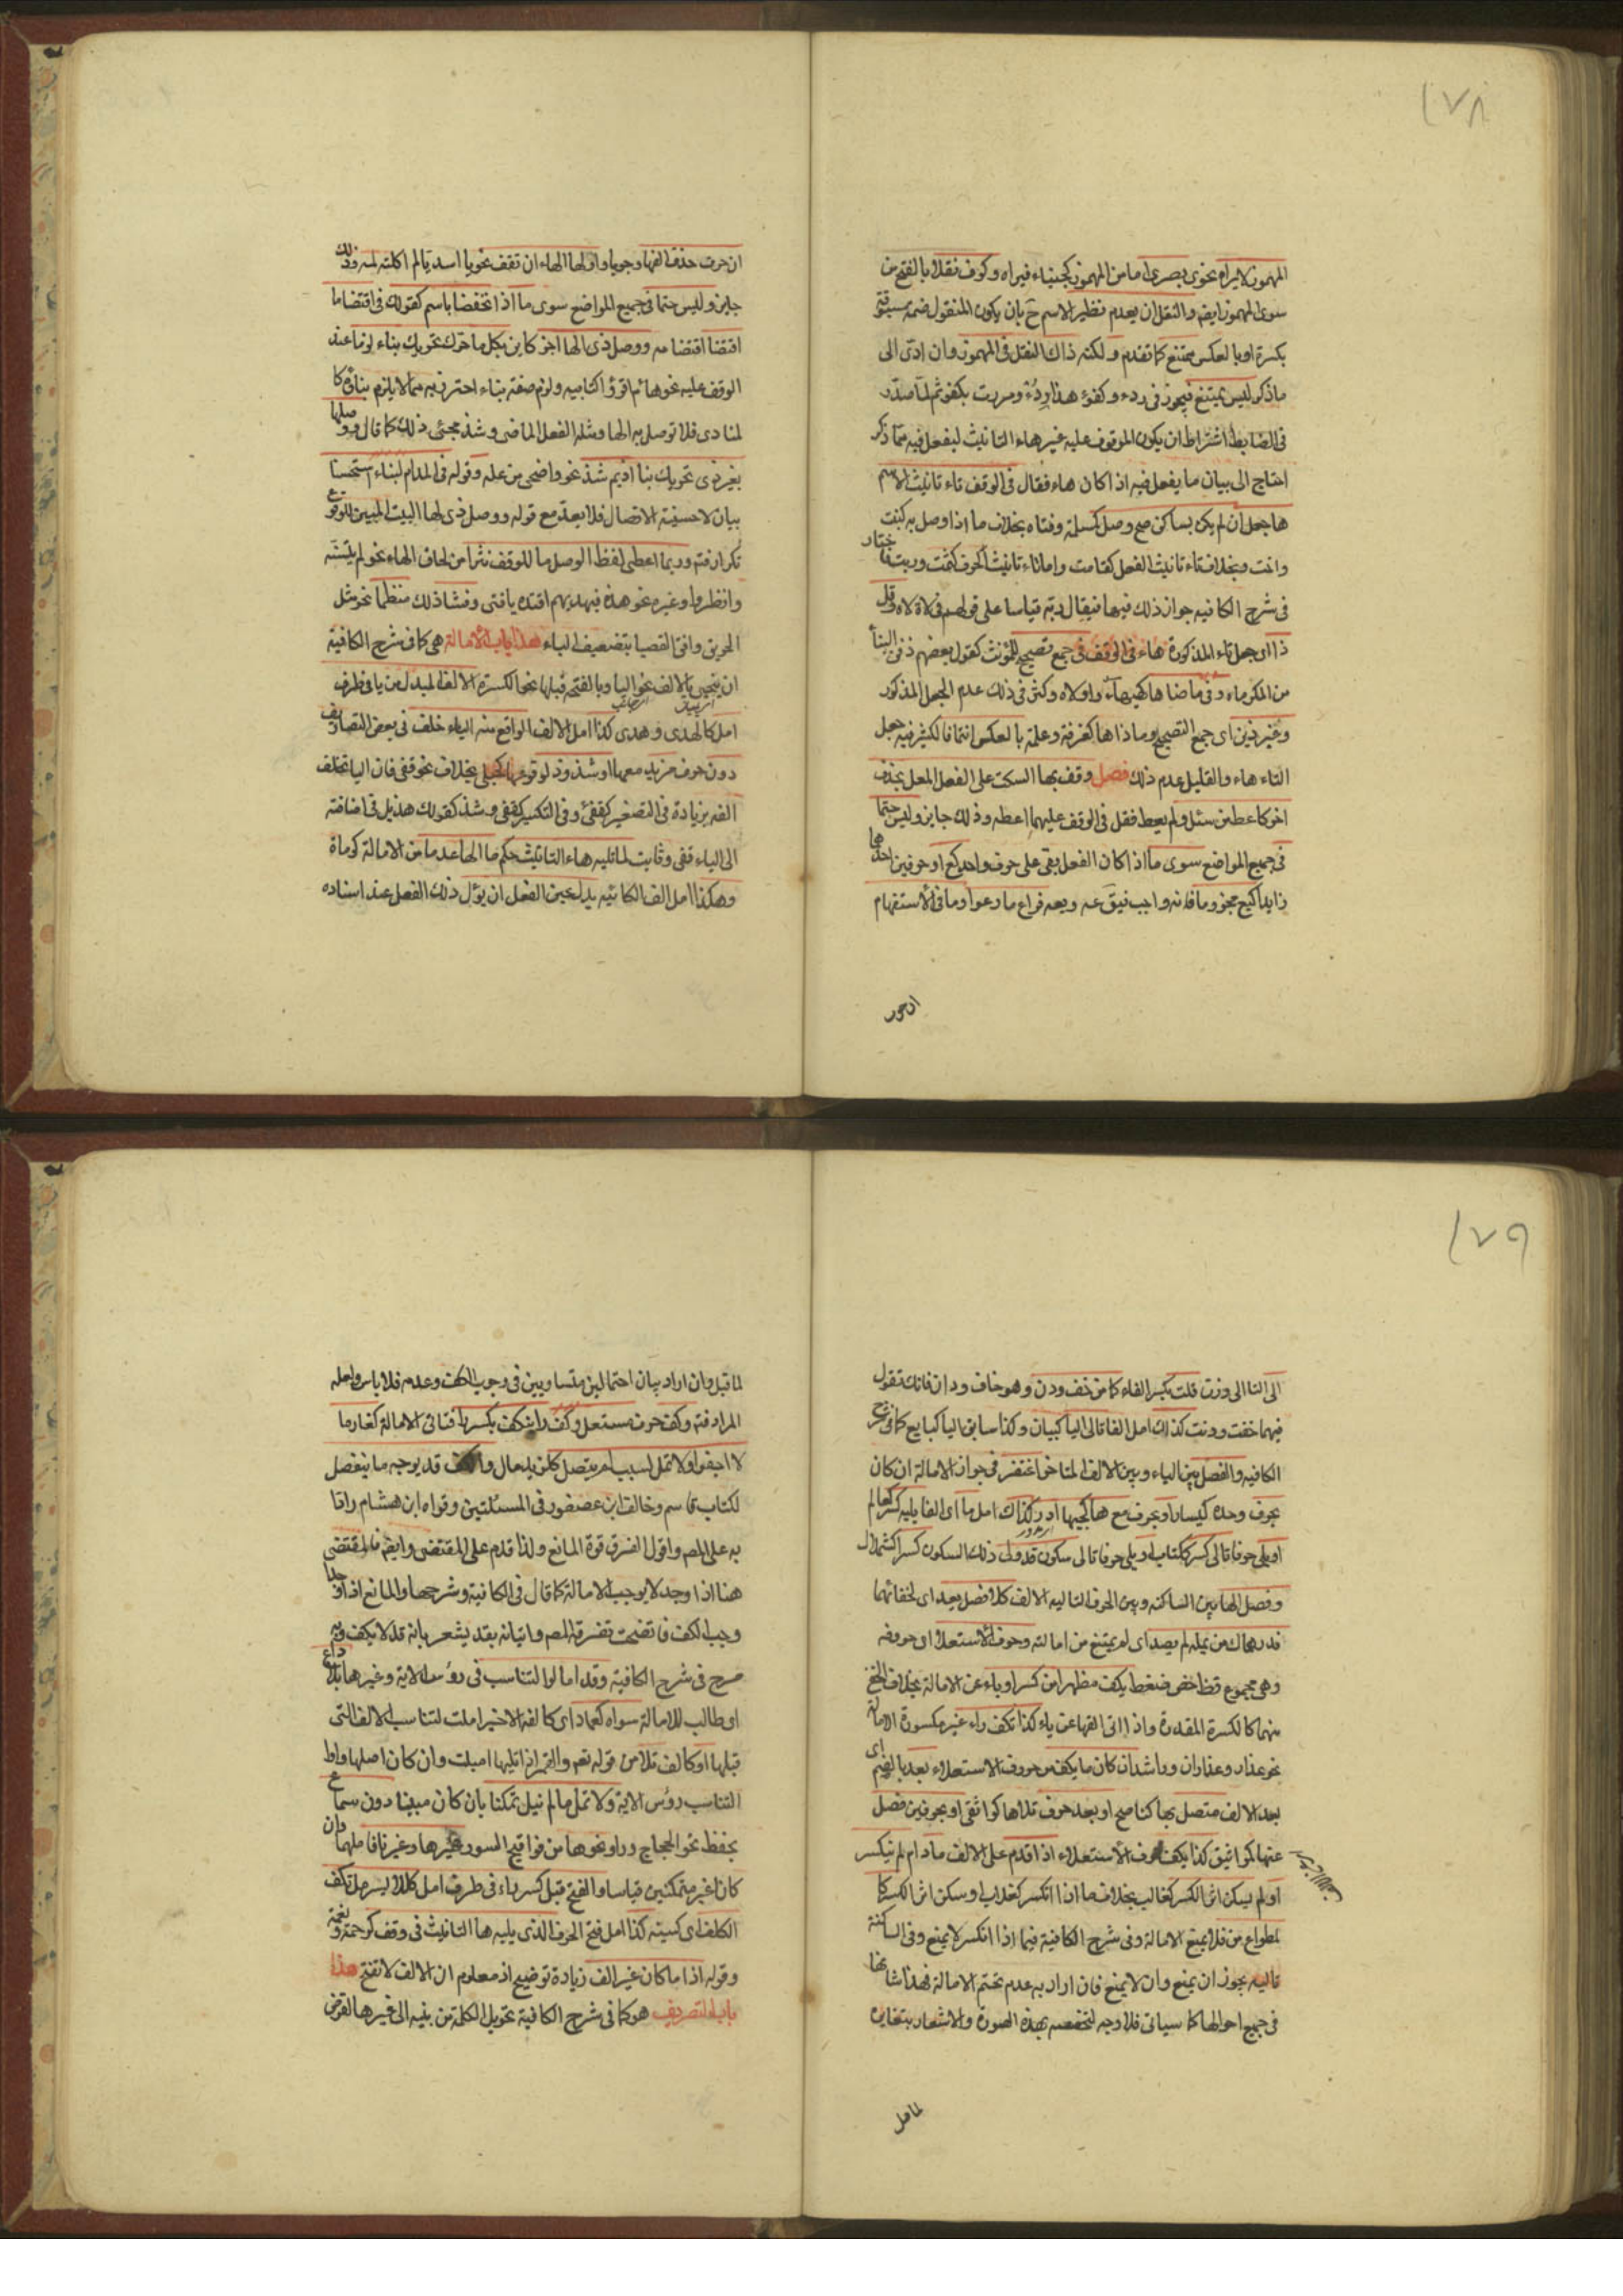 ١٧٨
المهموز لا يراه نحوي بصرى اما من المهموز كجيناء فيراه وكوف نقلا بالفتح من
سوى المهموز ايضا والنقل ان يعدم نظير الاسم ح بان يكون المنقول ضمه مسبوقة
بكسرة او بالعكس ممتنع كما تقدم ولكنه ذاك النقل فى المهموز وان ادى الى
ما ذكر ليس يمتنع فيجوز فى ردء وكفؤ هذا ردء ومررت بكفو ثم لما صدر
فى الضابط اشتراط ان يكون الموقوف عليه غير هاء التانيث ليفعل فيه مما ذكر
احتاج الى بيان ما يفعل فيه اذا كان هاء فقال فى الوقف تاء تانيث الاسم
ها جعل ان لم يكن بساكن صح وصل كمسلمة وفتاه بخلاف ما اذا وصل به كبنت
واخت وبخلاف تاء تانيث الفعل كقامت واما تاء تانيث الحرف كثمت وربت فاختار
فى شرح الكافيه جواز ذلك فيها فيقال ربه قياسا على قولهم فى لات لاه وقل
ذا اى جعل تاء المذكورة هاء فى الوقف فى جمع تصحيح للمؤنث كقول بعضهم دفن البناه
من المكرماه وفى ما ضاها كهيهاه واولاه وكثر فى ذلك عدم الجعل المذكور
وغير ذين اى جمع التصحيح وما ذاها كغرفة وعلمة بالعكس انتما فالكثير فيه جعل
التاء هاء والقليل عدم ذلك فصل وقف بها السكت على الفعل المعل بحذف
اخر كاعط من سئل ولم يعط فقل فى الوقف عليهما اعطه وذلك جايز وليس حتما
فى جميع المواضع سوى ما اذا كان الفعل بقى على حرف واحد كع او حرفين احدهما
زايد كيع مجزوما فانه واجب فيق عه ويعه فراع ما رعوا وما فى الاستفهام
ان جرت
ان جرت حذف الفها وجوبا واولها الهاء ان تقف نحو يا اسديا لم اكلته لمه وذلك
جايز وليس حتما فى جميع المواضع سوى ما اذا انخفضا باسم كقولك فى اقتضا ما
اقتضا اقتضا مه ووصل ذى الها اجز كاين بكل ما حرك تحريك بناء لزما عند
الوقف عليه نحو هاؤم اقرؤا كتابيه ولزم صفة بناء احترز به مما لا يلزم بناؤه كا
لمنادى فلا توصل به الها ومثله الفعل الماضى وشذ مجئ ذلك كما قال ووصلها
بغير ذى تحريك بنا اديم شذ نحو واضحى من عله وقوله فى المدام لبناء استحسنا
بيان لاحسنية الاتصال فلا يعد مع قوله ووصل ذى لها البيت المبين للوقوع
تكرار فتم وربما اعطى لفظ الوصل ما للوقف نثرا من لحاق الهاء نحو لم يتسنه
وانظر وا وغيره نحو هذه فبهديهم اقتده يا فتى وفشا ذلك منتظما نحو مثل
الحريق وافق القصبا بتضعيف الباء هذا باب الامالة هى كما فى شرح الكافية
ان ينحى بالالف نحو اليا وبالفتحة قبلها نحو الكسرة الالف المبدل من يا فى طرف
امل كالهدى وهدى كذا امل الالف الواقع منه الياء خلف فى بعض التصاريف
دون حرف مزيد معها او شذوذ لوقوعها كحبلى بخلاف نحو قفى فان اليا تخلف
الفه بزيادة فى التصغير كقفى وفى التكسير كقفى وشذ كقولك هذيل فى اضافته
الى الياء قفى وثابت لما تليه هاء التانيث حكم ما الها عدما من الامالة كرماة
وهكذا امل الف الكائنه بدل عين الفعل ان يؤل ذلك الفعل عند اسناده
١٧٩
الى التا الى وزن قلت بكسر الفاء كما من خف ودن وهو خاف ودان فانك تقول
فيهما خفت ودنت كذاك امل الفا تالى اليا كبيان وكذا سابق اليا كبايع كما فى شرح
الكافيه والفصل بين الياء وبين الالف المتاخر اغتفر فى جواز الامالة ان كان
بحرف وحده كيسار او بحرف مع ها كجيبها ادر كذاك امل ما اى الفا يليه كسر كعالم
او يلى حرفا تالى كسر ككتاب او يلى حرفا تالى سكون قد ولى ذلك السكون كسرا كشملال
وفصل الها بين الساكنه وبين الحرف التاليه الالف كلا فصل يعد اى لخفائها
فدرهماك من يمله لم يصد اى لم يمتنع من امالته وحرف الاستعلاء اى حروفه
وهى مجموع قظ خص ضغط يكف مظهرا من كسر او ياء عن الامالة بخلاف الخفى
منهما كالكسرة المقدرة واذا اتى الفها عن ياء كذا تكف راء غير مكسورة الامالة
نحو عذار وعذاران وراشدان كان ما يكف من حروف الاستعلاء بعد بالضم اى
بعد الالف متصل بها كناصح او بعد حرف تلاها كواثق او بحرفين فصل
عنها كمواثيق كذا يكف حرف الاستعلاء اذا قدم على الالف ما دام لم ينكسر
او لم يسكن اثر الكسر كغالب بخلاف ما اذا انكسر كغلاب او سكن اثر الكسر كا
لمطواع من فلا يمنع الامالة وفى شرح الكافية فيما اذا انكسر لا يمنع وفى الساكنة
تاليه يجوز ان يمنع وان لا يمنع فان اراد به عدم تحتم الامالة فهذا شانها
فى جميع احوالها كما سياتى فلا وجه لتخصيصه بهذه الصورة والاشعار بتغاير
لما قبل
لما قبل وان اراد بيان احتمالين متساويين فى وجوب الكف وعدمه فلا باس ولعله
المراد فتم وكف حرف مستعل وكف را ينكف بكسر را فتاتى الامالة كغارما
لا اجفوا ولا تمل لسبب لم يتصل كلزيد مال والكف قد يوجبه ما ينفصل
لكتاب قاسم وخالف ابن عصفور فى المسئلتين وقواه ابن هشام رادا
به على المص واقول الفرق قوة المانع ولذا قدم على المقتضى وايضا فالمقتضى
هنا اذا وجد لا يوجب الامالة كما قال فى الكافية وشرحها والمانع اذا وجد
وجب الكف فاتضحت تفرقة المص واتيانه بقد يشعر بانه قد لا يكف وبه
صرح فى شرح الكافية وقد امالوا لتناسب فى رؤس الاية وغيرها بلا داع
او طالب للامالة سواه كعمادا اى كالفه الاخير املت لتناسب الالف التى
قبلها او كالف تلا من قوله تعم والقمر اذا تليها اميلت وان كان اصلها واوا
لتناسب رؤس الاية ولا تمل ما لم نيل تمكنا بان كان مبينا دون سماع
يحفظ نحو الحجاج وراو نحوها من فواتح السور غيرها وغيرنا فاملهما وان
كانا غير متمكنين قياسا والفتح قبل كسر راء فى طرف امل كللايسر مل تكف
الكلف اى كسيته كذا امل فتح الحرف الذى يليه ها التانيث فى وقف كرحمة ونعمة
وقوله اذا ما كان غير الف زيادة توضيح اذ معلوم ان الالف لا تفتح هذا
باب التصريف هو كما فى شرح الكافية تحويل الكلمة من بنيه الى غيرها لغرض